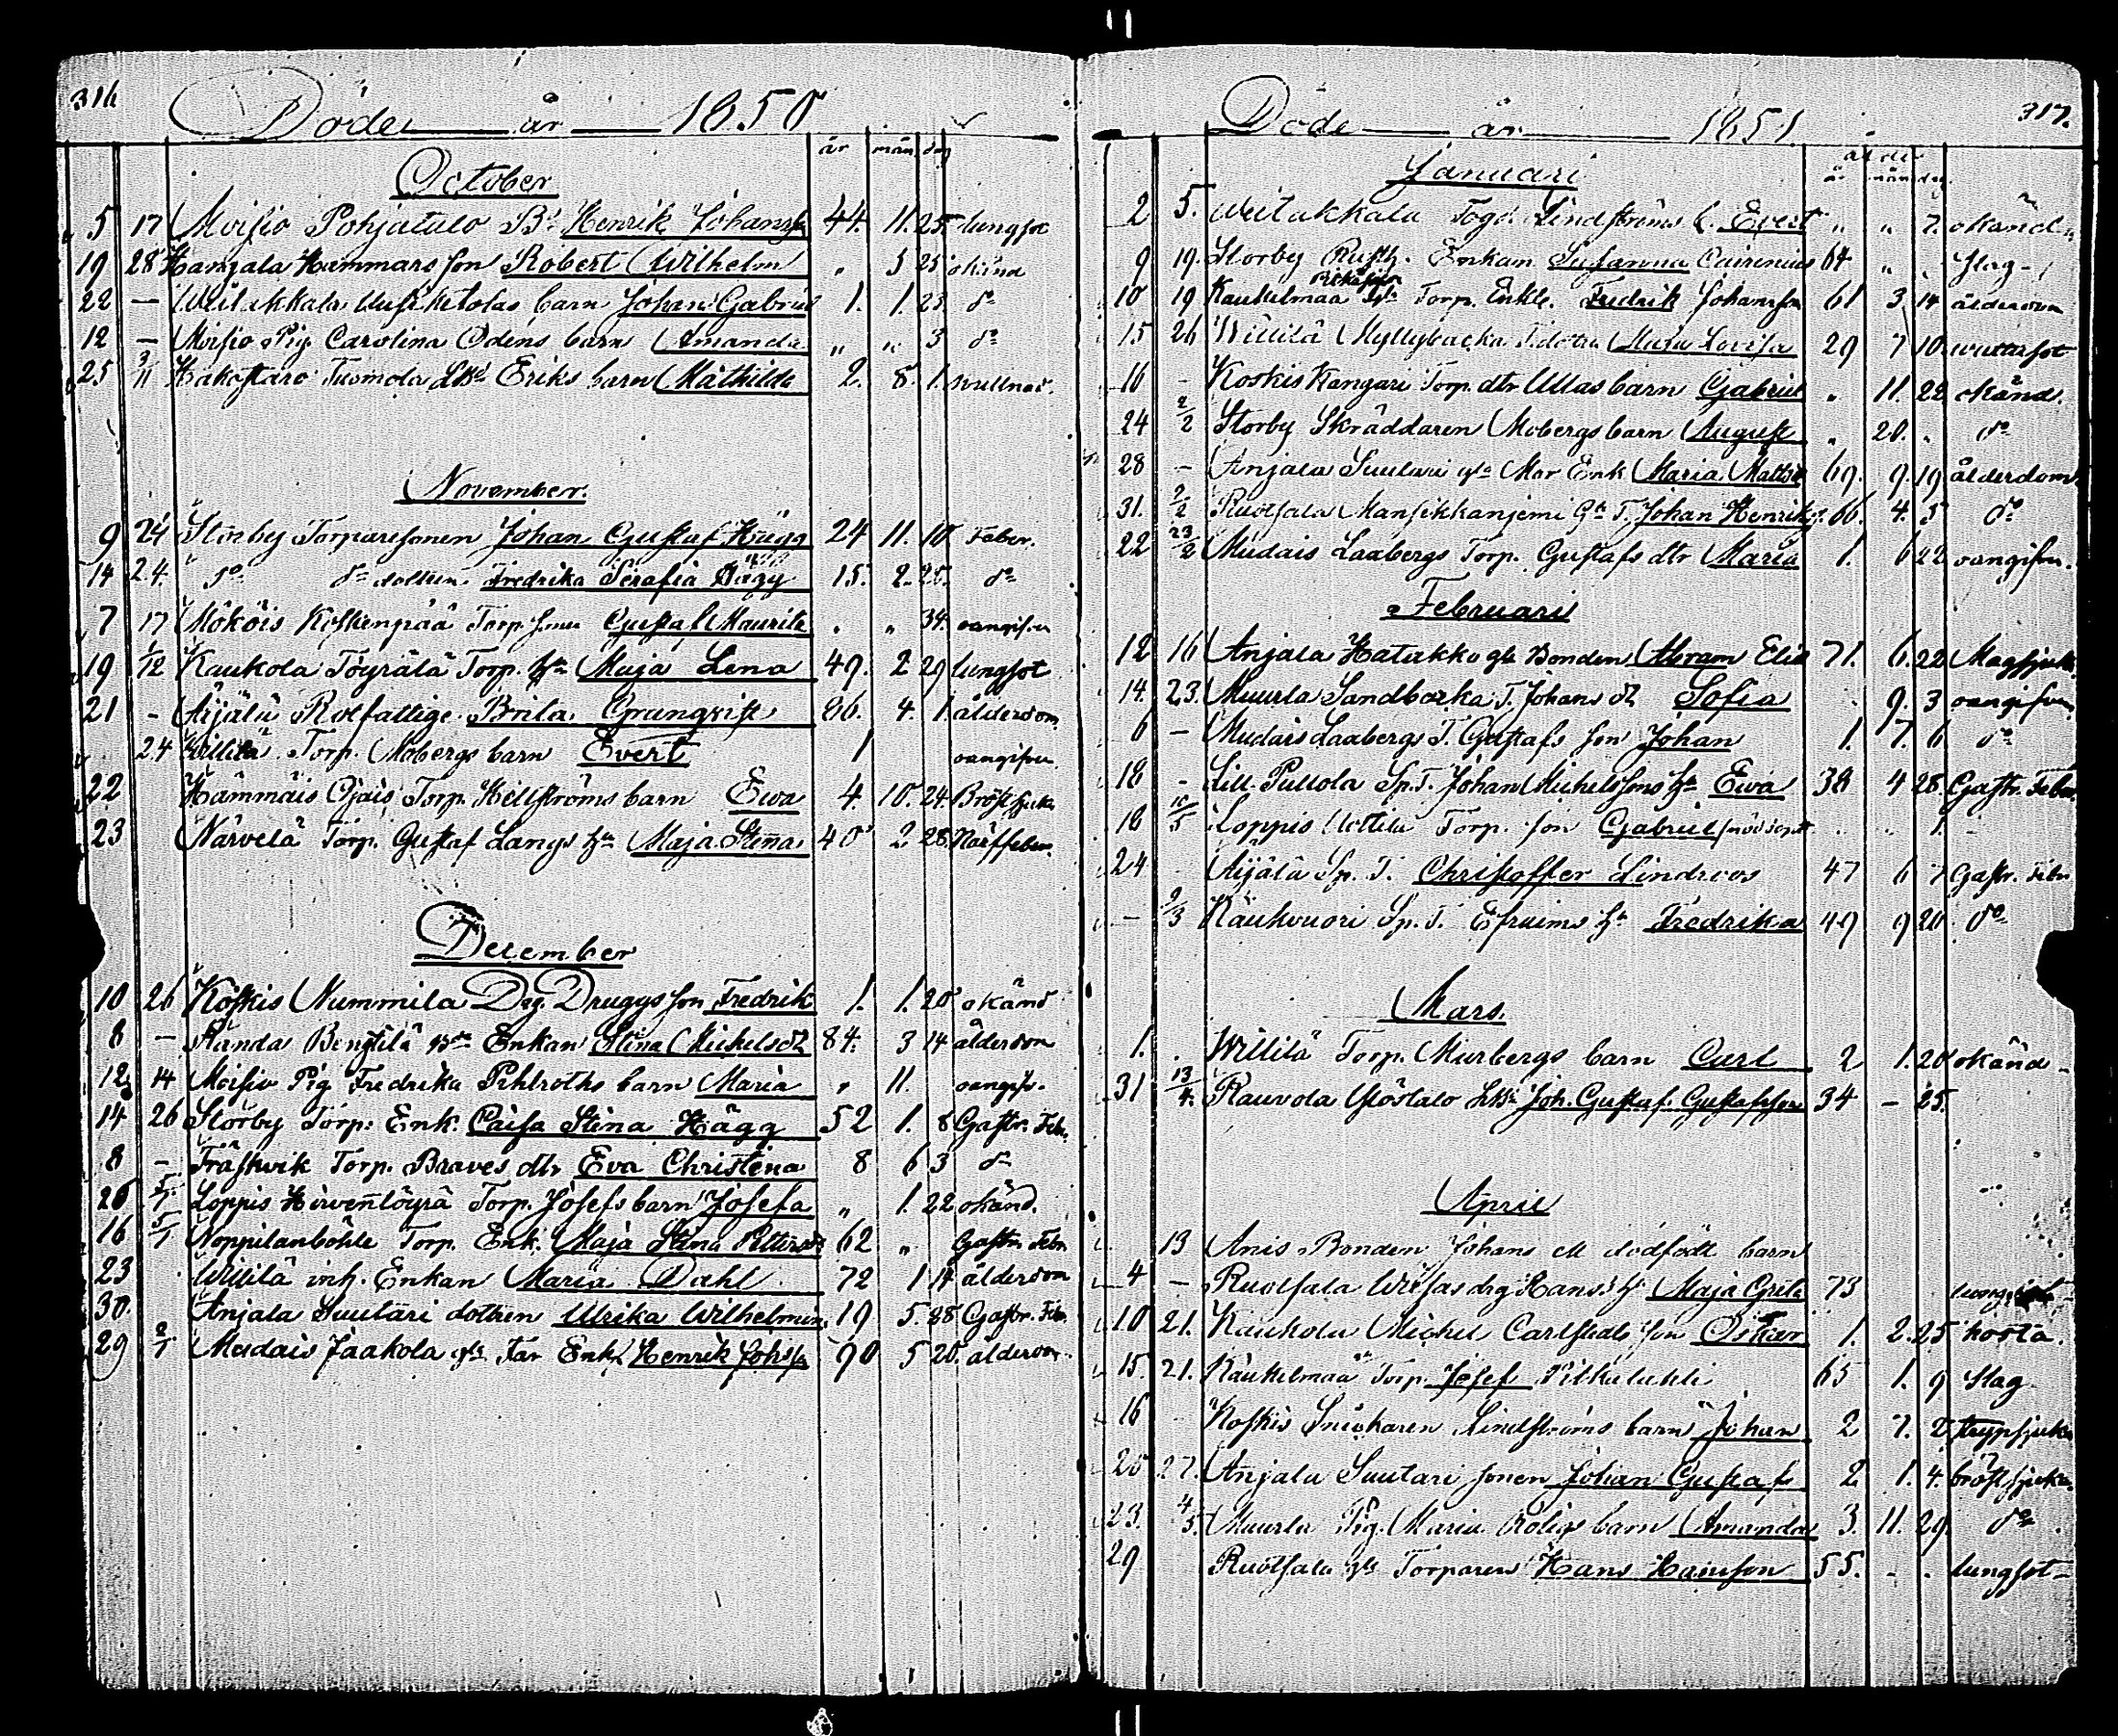 316
Döde år 1850
år mån dag
October
5 17 Moisio Pohjatalo Bd Henrik Johanss. 44. 11. 25. lungsot
19 28 Kangala Hammars son Robert Wilhelm " 5 25 okänd
22 — barn Johan Gabriel 1. 1. 23. do
12 — Moisio Pig. Carolina Odens barn Amanda " " 3 do
25 3/11 Hakostaro Tuomola Eriks barn Mathilda 2. 8. 1.
November.
9 24 Storby Torparesonen Johan Gustaf Hägg 24 11. 10 Feber.
14 24. do do dottren Fredrika Serafia Hägg 15. 2. 25. do
7 17 Mököis Koskenpää Torp. son Gustaf Maurits " " 34. oangifven
19 1/12 Kaukola Töyrälä Torp. Maja Lena 49. 2 29 lungsot
21 - Äijälä Rotfattige Brita Grunqvist 86. 4. 1. ålderdom
24 Willilä Torp. Mobergs barn Evert 1 oangifven.
22 Hämmäis Ojais Torp. Hellströms barn Ewa 4. 10. 24. Bröstsjuka
23 Närvelä Torp. Gustaf Langs Maja Stina 40 2. 28.
December
10 26 Koskis Nummila Drg. Druggs son Fredrik 1. 1. 20 okänd
8 — Bengtilä Enkan Stina Michelsdr 84. 3 14 ålderdom
12 14 Moisio Pig Fredrika Pihlroths barn Maria " 11. oangif.
14 26 Storby Torp. Enk. Caisa Stina Hägg 52 1. 8 Gastr. Feb.
8 — Träskvik Torp. Braves dtr Eva Christina 8 6 3 do
20 5/1 Loppis Hirventöyrä Torp. Josefs barn Josefa " 1. 22 okänd.
16 5/1 Noppilanböhle Torp. Enk. Maja Stina 62 " Gastr. Febr
23 Willilä inh. Enkan Maria Dahl 72 1 14 ålderdom
30. Anjala Suutari dottren Ulrika Wilhelmin. 19 5. 28 Gastr. Feb.
29 2/1 Mudais Jaakola Far Enk. Henrik Johss. 90 5 20. ålderdom.
317.
Döde år 1851.
ålder
år mån dag
Januari
2 5. Lindströms b. Evert " " 7. okänd
9 19. Storby Rusth. Enkan Susanna Cairenius 64 " " slag
10 19 Kaukelmaa Torp. Enkl. Fredrik Johansson 61 3 14 ålderdom
15 26 Willilä Myllybacka Maria Lovisa 29 7 10
16 - Koskis Kangari Torp. dtr Ullas barn Gabriel " 11. 22 okänd.
24 2/2 Storby Skräddaren Mobergs barn August " 20. " do
28 — Anjala Suutari Mor Enk Maria Matts. 69. 9. 19 ålderdom
31. 2/2 Ruotsala Mansikkaniemi T. Johan Henriks. 66. 4. 5 do
22 23/2 Mudais Laabergs Torp. Gustafs dtr Maria 1. 6 22 oangifven.
Februari
12 16 Anjala Hatakko Bonden Abram Elia 71. 6. 22 Magsjuk.
14. 23. Muurla Sandbacka T. Johans dr Sofia 9. 3 oangifven
6 — Mudais Laabergs T. Gustafs son Johan 1. 7. 6 do
18 - Lill Pullola Sp. T. Johan Michelssons Ewa 38 4 28. Gastr. Feber.
18 10/5 Loppis Torp. son Gabriel 1.
24 Äijälä Sp. T. Christoffer Lindroos 47 6 7 Gastr. Febr
— 9/3 Kaukvuori Sp. T. Efraims Fredrika 49 9 20 do
Mars.
1. Willilä Torp. Murbergs barn Carl 2 1. 20 okänd
31 13/4. Rauvola Joh. Gustaf Gustafsson 34 — 25.
April
13 Anis Bonden Johans dödfödt barn
4 — Ruotsala Hans Maja Greta 73
10 21. Kaukola Michel Carlstedts son Oskar 1. 2. 25 hosta.
15. 21. Kaukelmaa Torp. Josef 65 1. 9 slag
16 Koskis Snickaren Lindströms barn Johan 2 7. 2
20 27. Anjala Suutari sonen Johan Gustaf 2 1. 4. bröstsjuka.
23. 4/5. Muurla Pig. Maria Röligs barn Amanda 3. 11. 29 do
29 Ruotsala Torparen Hans Hansson 55. - - lungsot